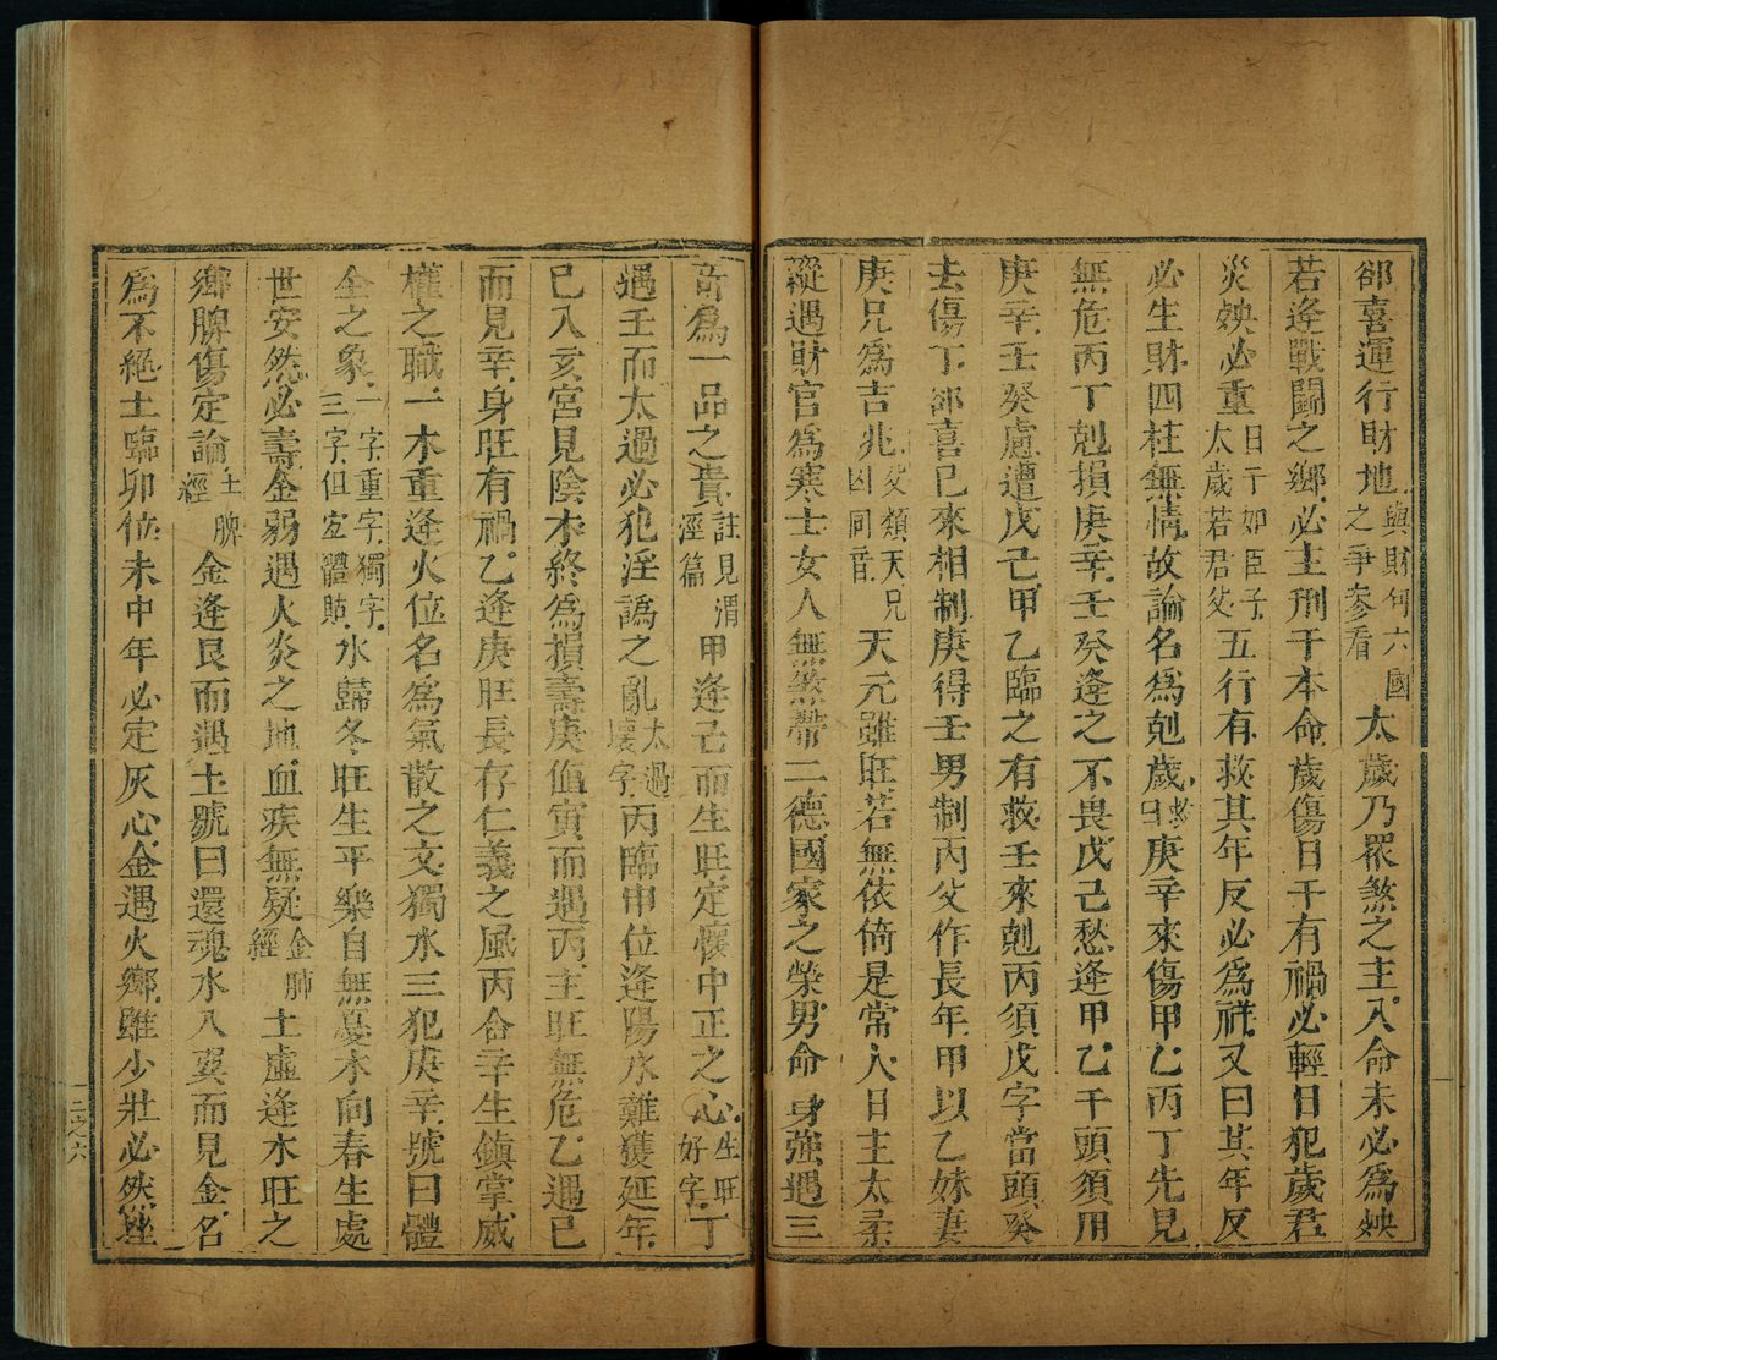 郤喜運行財地與財何六國之爭參看太歲乃衆煞之主入命未必為殃
若逢戰鬭之鄉必主刑于本命歲傷日干有禍必輕日犯歲君
災殃必重日干如臣子太歲若君父五行有救其年反必為祥又曰其年反
必生財四柱無情故論名為剋歲救曰庚辛來傷甲乙丙丁先見
無危丙丁剋損庚辛壬癸逢之不畏戊己愁逢甲乙干頭須用
庚辛壬癸慮遭戊己甲乙臨之有救壬來剋丙須戊字當頭癸
去傷丁郤喜已來相制庚得壬男制丙父作長年甲以乙妹妻
庚兄為吉兆父類天兄凶同音天元雖旺若無依倚是常人日主太柔
縱遇財官為寒士女人無煞帶二德國家之榮男命身強遇三
奇為一品之貴註見渭涇篇甲逢己而生旺定懷中正之心生旺好字丁
遇壬而太過必犯淫譌之亂太過壞字丙臨申位逢陽水難獲延年
已入亥宮見陰木終為損壽庚值寅而遇丙主旺無危乙遇已
而見辛身旺有禍乙逢庚旺長存仁義之風丙合辛生鎮掌威
權之職一木重逢火位名為氣散之文獨水三犯庚辛號曰體
全之象一字重字獨字三字但宜體貼水歸冬旺生平樂自無憂木向春生處
世安然必壽金弱遇火炎之地血疾無疑金肺經土虛逢木旺之
鄉脾傷定論土脾經金逢艮而遇土號曰還魂水入巽而見金名
為不絕土臨卯位未中年必定灰心金遇火鄉雖少壯必然挫